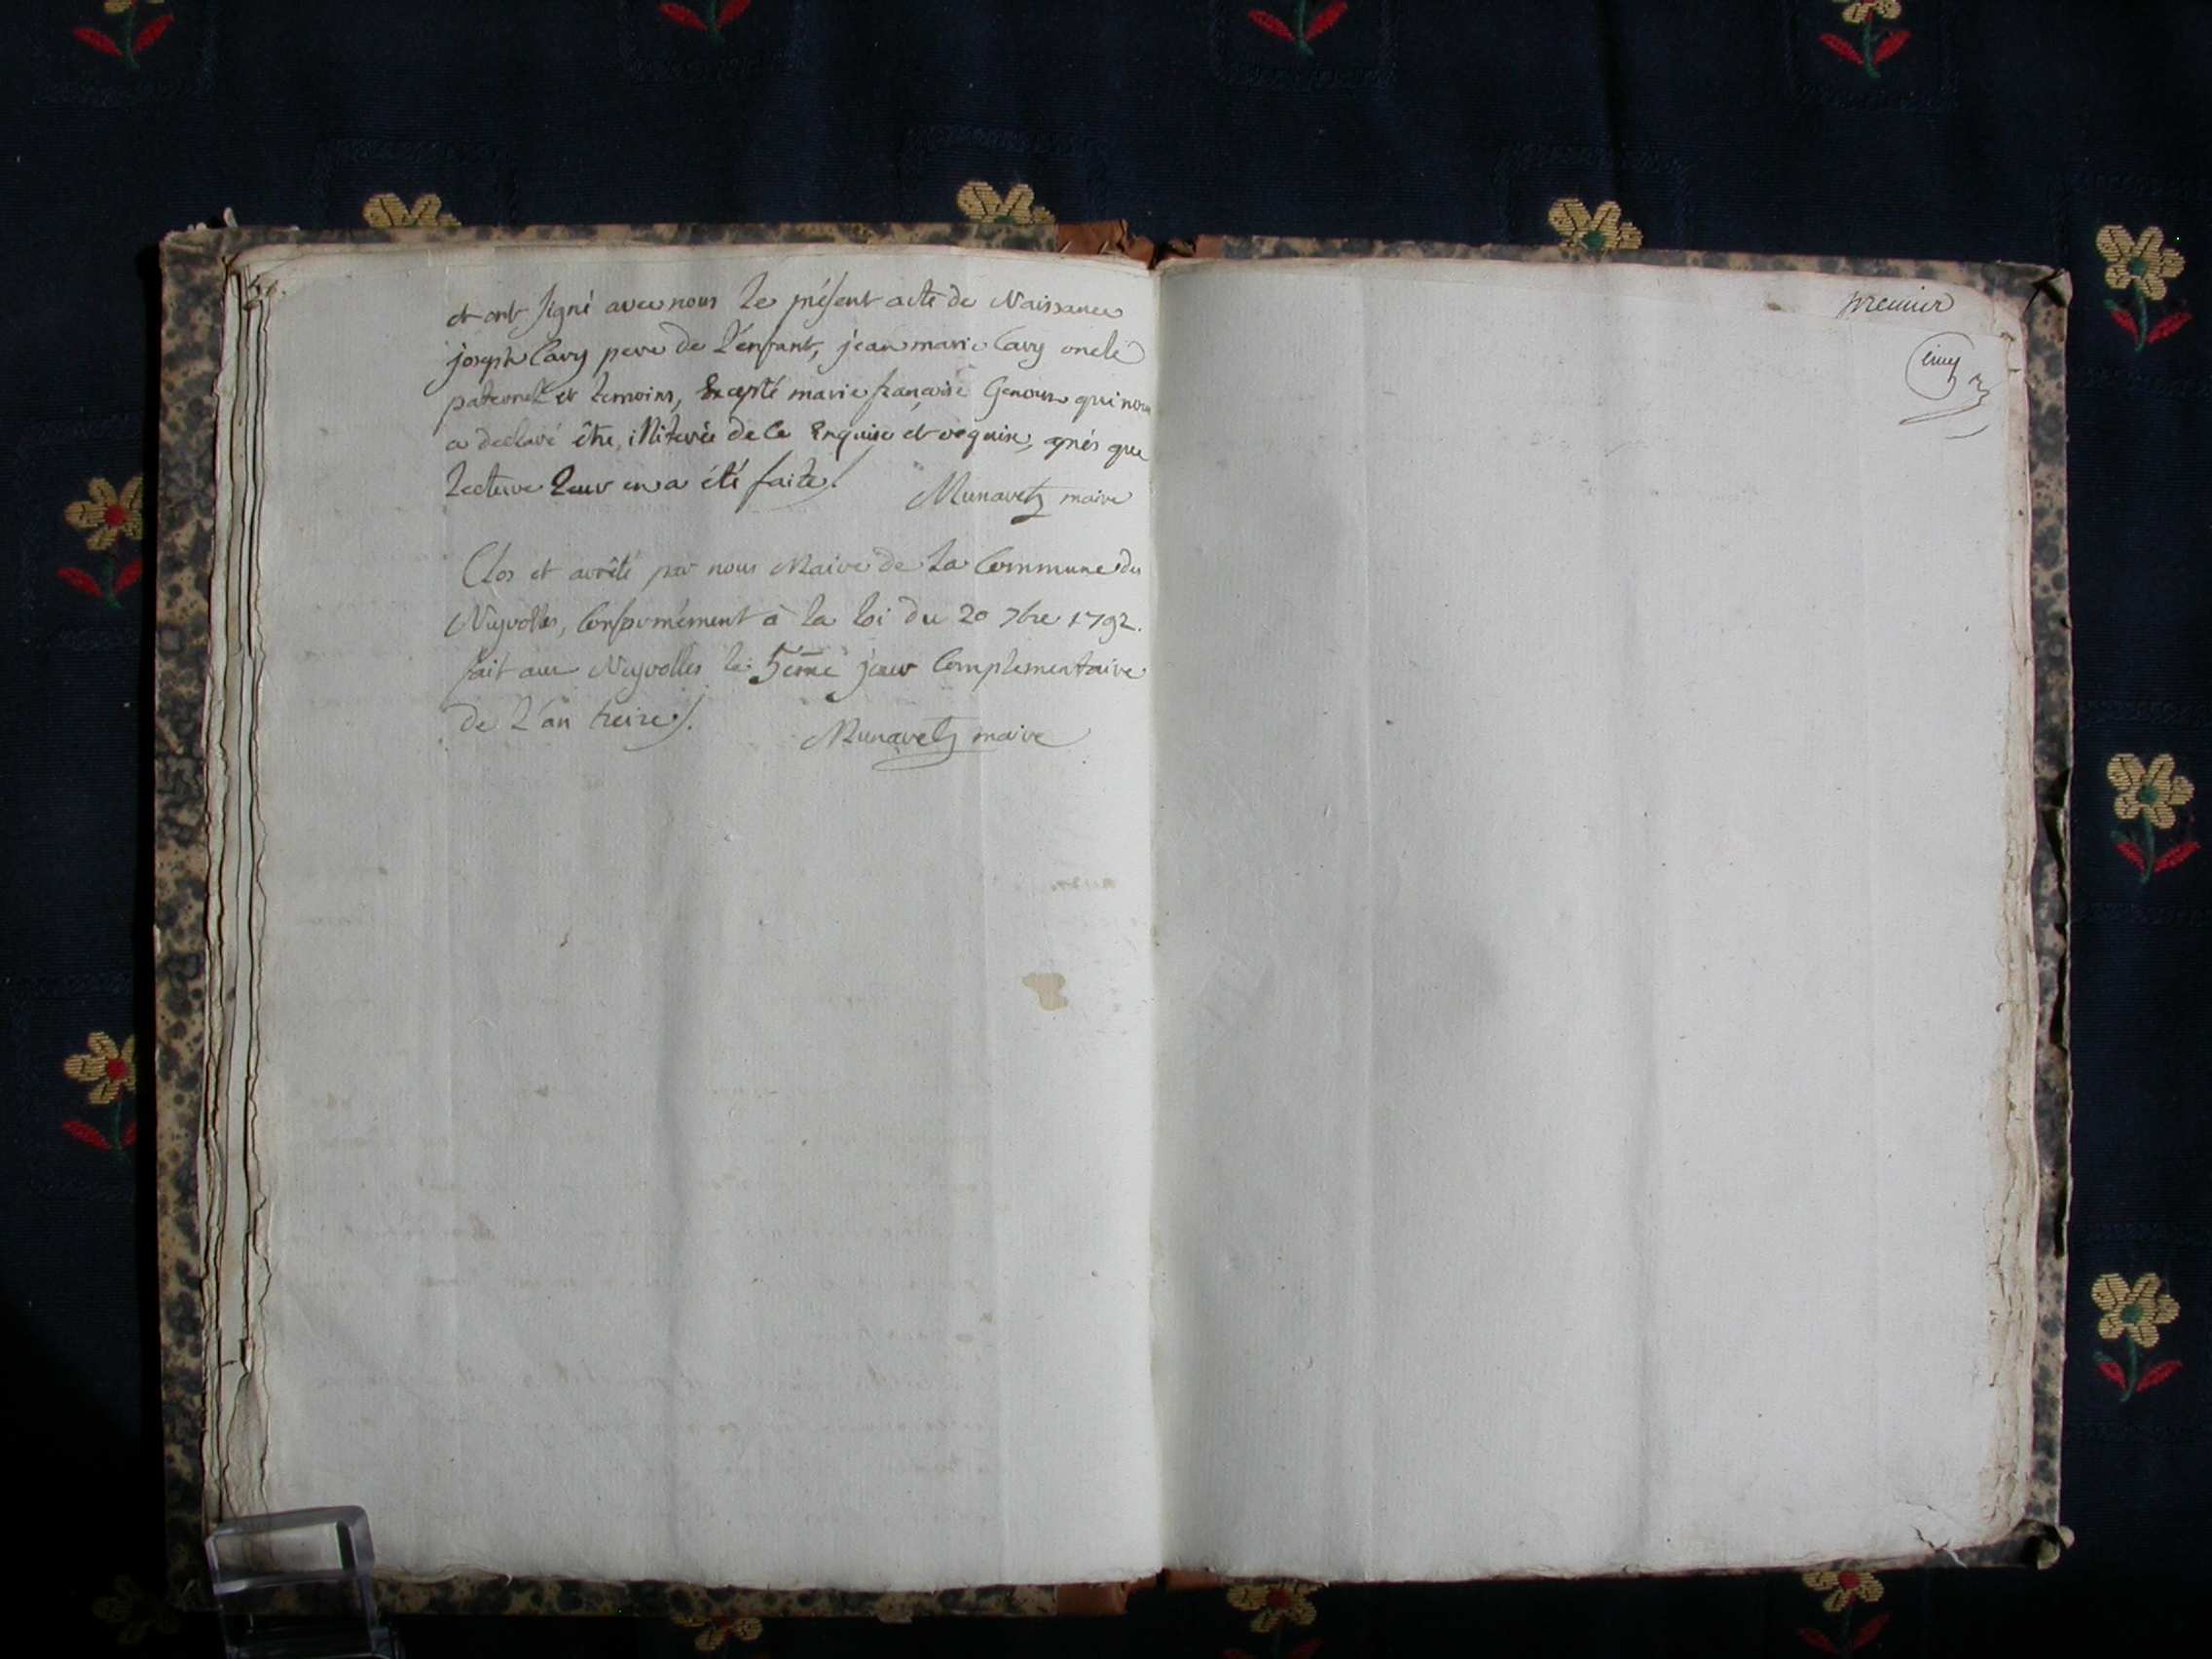 et ont signé avec nous le présent acte de Naissance
joseph Cavy pere de l'enfant, jean marie Cavy oncle
paternel et temoins, Excepté marie françoise Genoux qui nous
a declaré être, illiterée de ce Enquise et requise, après que
lecture leur en a été faite./.
Munaretz maire
Clos et arrêté par nous Maire de la Commune des
Neyrolles, Conformément à la loi du 20 7bre 1792.
fait aux Neyrolles le 5eme jour Complementaire
de l'an treize./.
Munaretz maire
premier